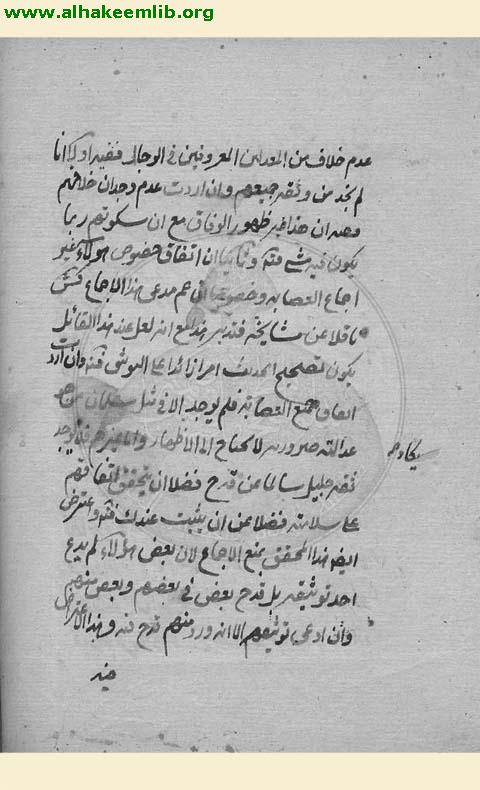 www.alhakeemlib.org
عدم خلاف من المعدلين المعروفين في الرجال ففيه اولا انا
لم نجد من وثقه جميعهم وان اردت عدم وجدان خلافهم
ففيه ان هذا غير ظهور الوفاق مع ان سكوتهم ربما
يكون فيه شئ فتأمل وثانيا ان اتفاق خصوص هؤلاء غير
اجماع العصابة وخصوصا ان مدعي هذا الاجماع كش
ناقلا عن مشايخه فتدبر هذا مع انه لعل عند هذا القائل
يكون تصحيح الحديث امرا زائدا على التوثيق فتأمل وان اردت
اتفاق جميع العصابة فلم يوجد الا في مثل سلمان ممن
عدالته ضرورية لا يحتاج الى الاظهار واما غيرهم فلا يوجد
يكاد
ثقة جليل سالما عن قدح فضلا ان يتحقق اتفاقهم
على سلامته فضلا عن ان يثبت عندك فتأمل واعترض
ايضا هذا المحقق بمنع الاجماع لان بعض هؤلاء لم يدع
احد توثيقه بل قدح بعض في بعضهم وبعض منهم
وان ادعى توثيقهم الا انه ورد منهم قدح فيه وهذا الاعتراض
فيه